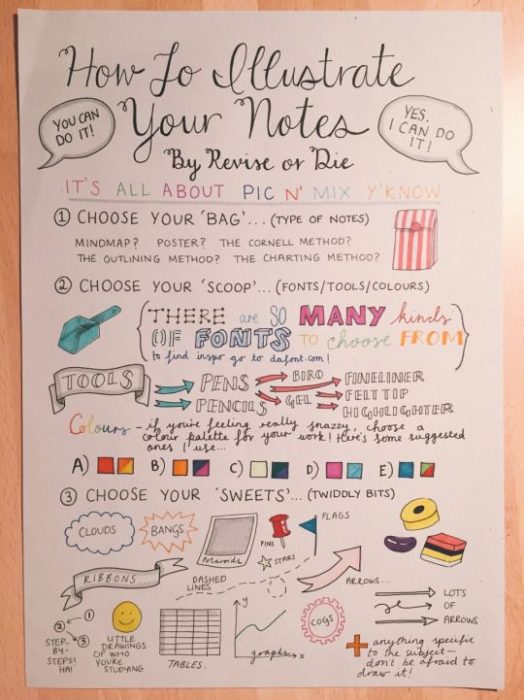 How To Illustrate
Your Notes
YOU CAN
DO IT!
YES.
I CAN DO
IT!
By Revise or Die
IT'S ALL ABOUT PIC N' MIX Y'KNOW
① CHOOSE YOUR 'BAG'... (TYPE OF NOTES)
MINDMAP? POSTER? THE CORNELL METHOD?
THE OUTLINING METHOD? THE CHARTING METHOD?
② CHOOSE YOUR 'SCOOP'... (FONTS/TOOLS/COLOURS)
THERE are SO MANY kinds
OF FONTS TO choose FROM
to find inspo go to dafont.com!
TOOLS
PENS
PENCILS
BIRO
GEL
FINELINER
FELT TIP
HIGHLIGHTER
Colours - if you're feeling really snazzy, choose a
colour palette for your work! Here's some suggested
ones I use...
A) B) C) D) E)
③ CHOOSE YOUR 'SWEETS'... (TWIDDLY BITS)
CLOUDS
BANGS
Polaroids
PINS
STARS
FLAGS
RIBBONS
DASHED
LINES
ARROWS...
LOTS
OF
ARROWS
② ①
③
STEP-
BY-
STEPS!
HA!
LITTLE
DRAWINGS
OF WHO
YOU'RE
STUDYING
TABLES.
y
graphs
x
COGS
+ anything specific
to the subject -
don't be afraid to
draw it!